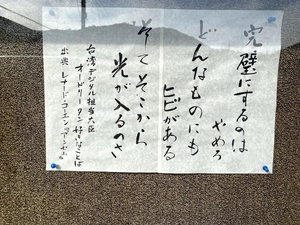 完璧にするのは
やめろ
どんなものにも
ヒビがある
そしてそこから
光が入るのさ
台湾デジタル担当大臣
オードリータン 好きなことば
出典 レナード・コーエン『アンセム』